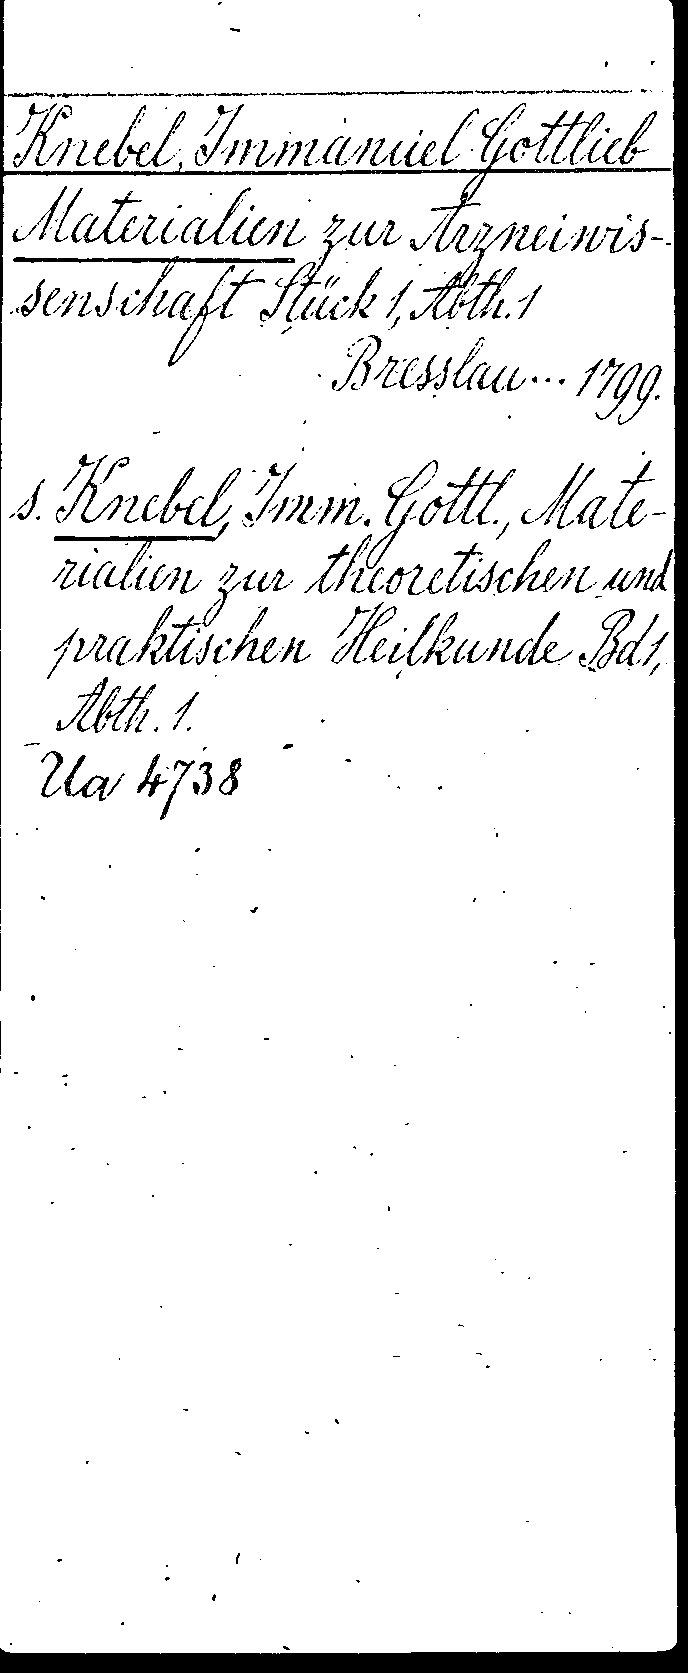 Knebel, Immanuel Gottlieb
Materialien zur Arzneiwis-
senschaft Stück 1, Abth. 1
Bresslau... 1799.
s. Knebel, Imm. Gottl., Mate-
rialien zur theoretischen und
praktischen Heilkunde Bd 1,
Abth. 1.
Ua 4738